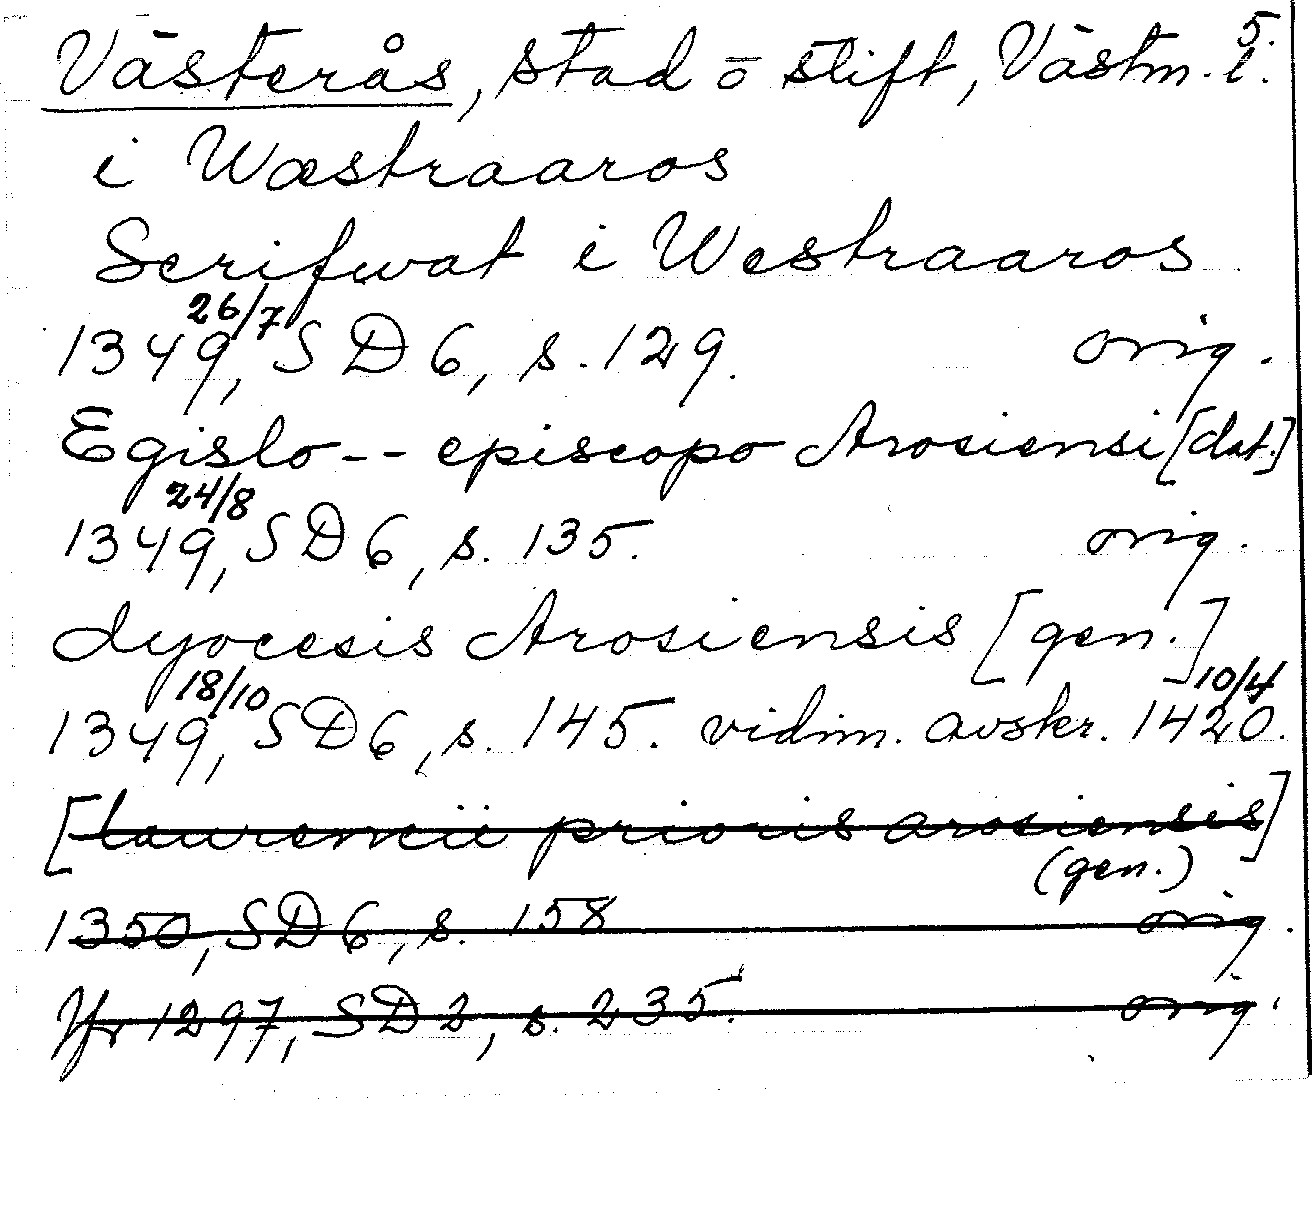 Västerås, stad o stift, Västm. l. 5.
i Wæstraaros
Scrifwat i Westraaros
1349 26/7, SD 6, s. 129. orig.
Egislo -- episcopo Arosiensi [dat.]
1349 24/8, SD 6, s. 135. orig.
dyocesis Arosiensis [gen.]
1349 18/10, SD 6, s. 145. vidim. avskr. 1420 10/4.
[laurencii prioris arosiensis]
(gen.)
1350, SD 6, s. 158 orig.
Jfr 1297, SD 2, s. 235. orig.